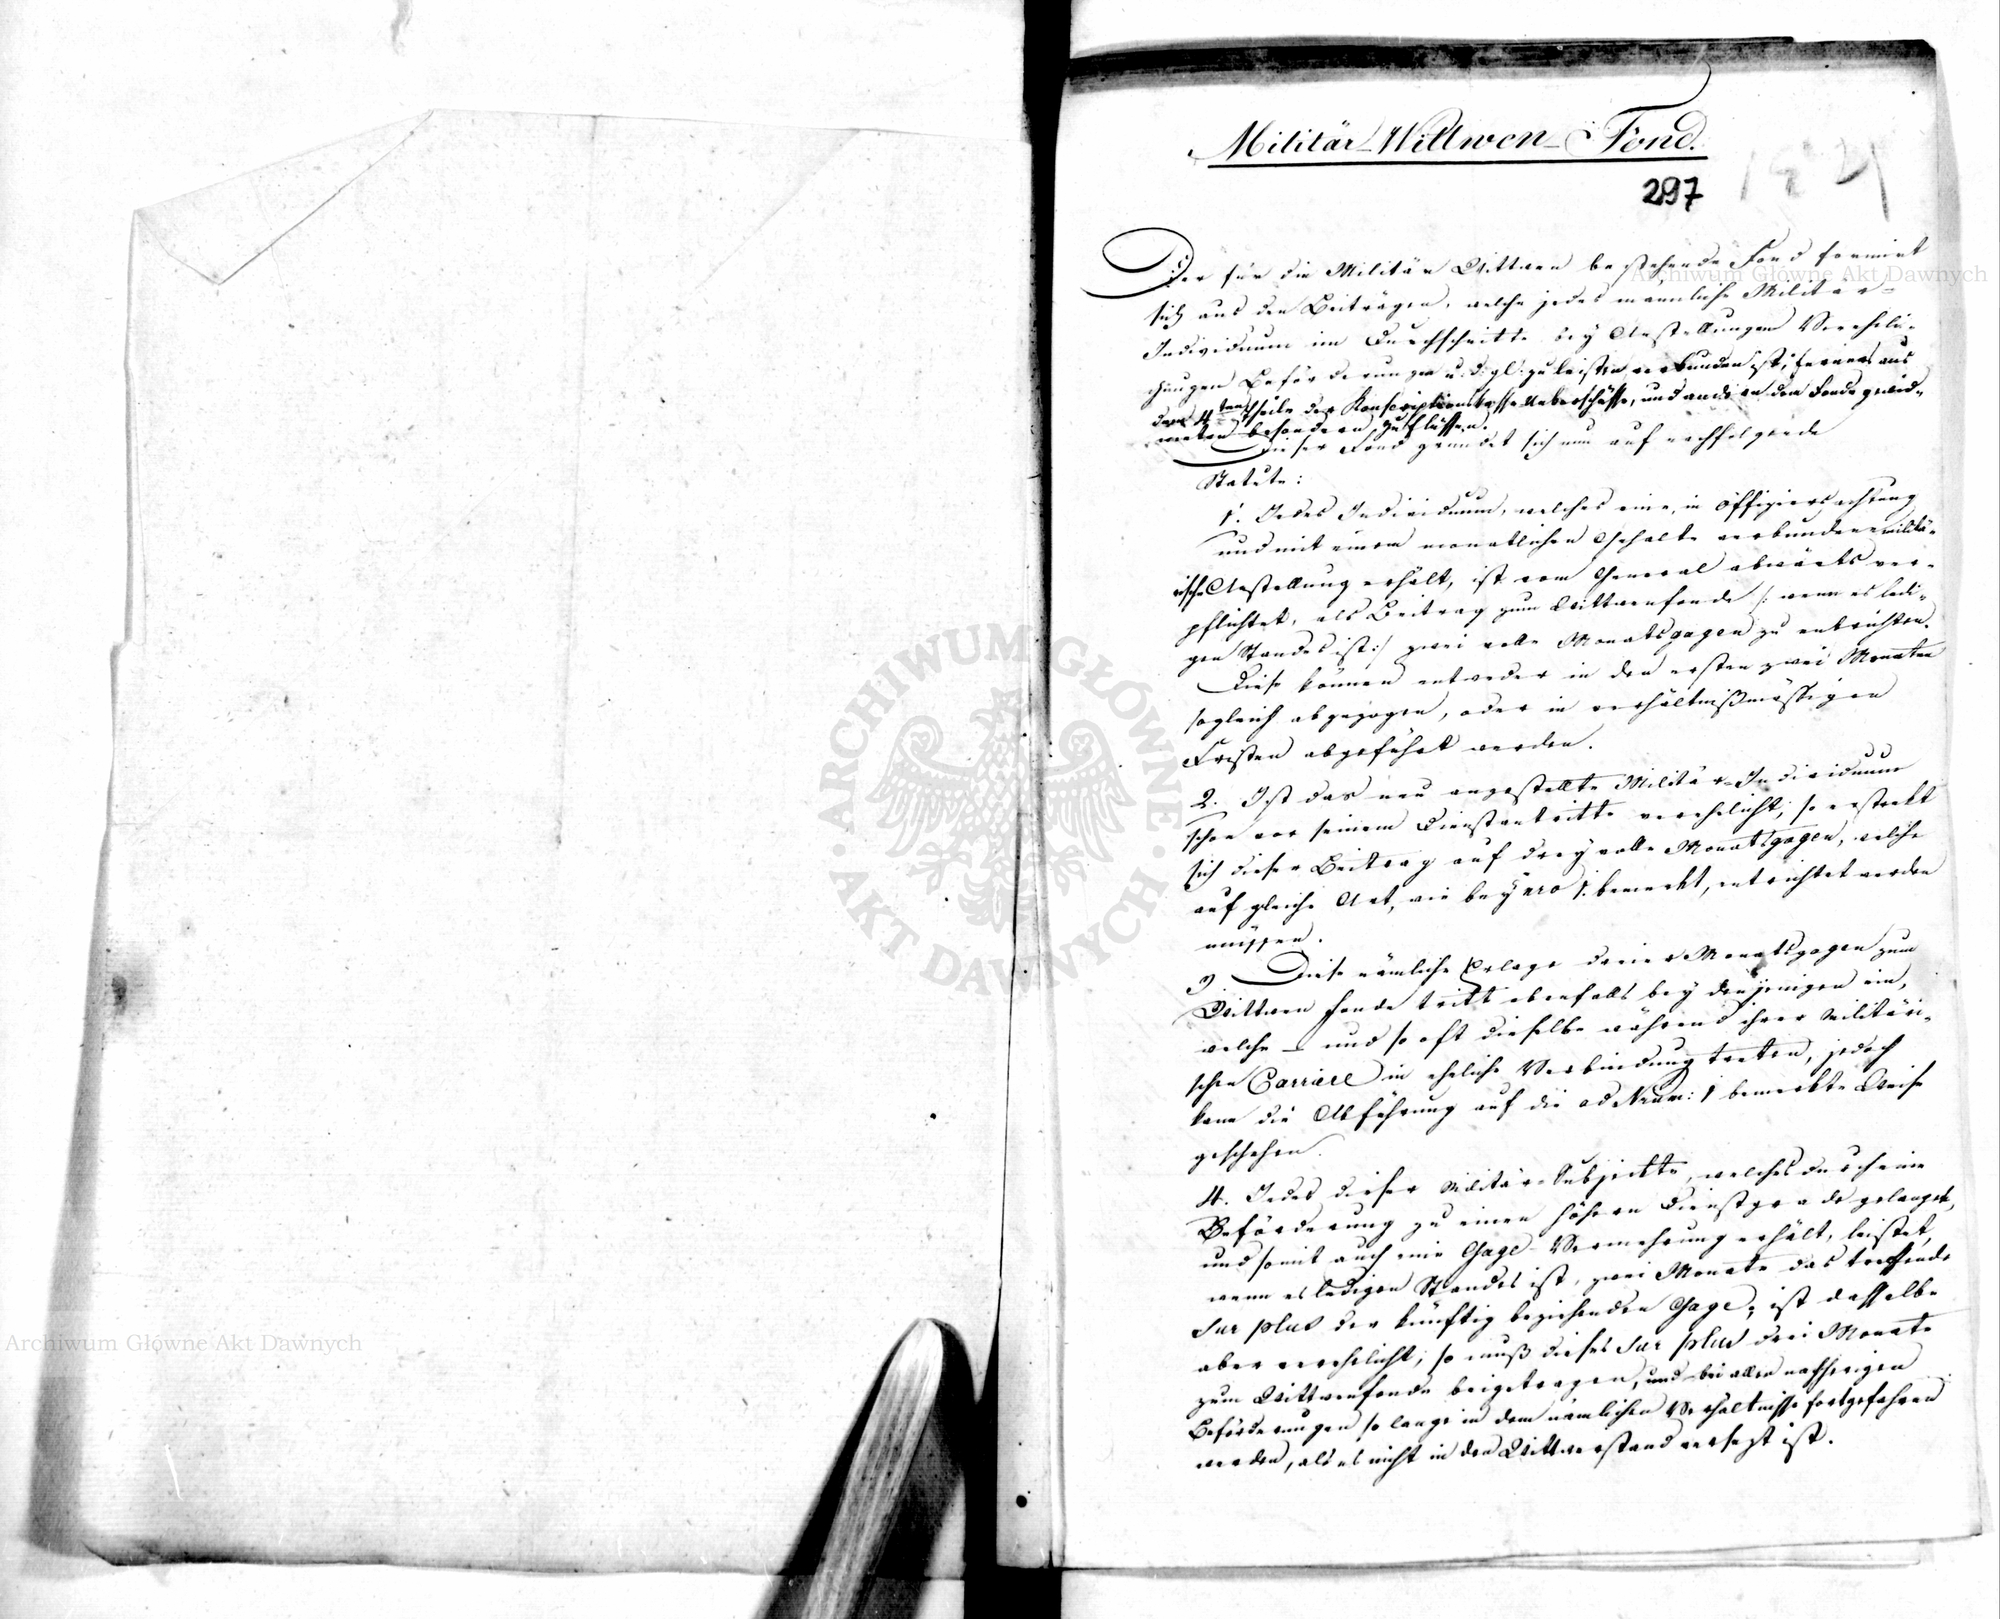 Militär-Wittwen-Fond.
297
Der für die Militär Wittwen bestehende Fond formirt
sich aus den Beiträgen, welche jedes männliche Militär-
Individuum im Durchschnitte bey Anstellungen Vereheli-
chungen Beförderungen u: d: gl: zu leisten verbunden ist; ferners aus
dem 4ten Theile der Konscriptionskasse Ueberschüsse, und andern dem Fonde gewid-
meten besondern Zuflüssen.
Dieser Fond gründet sich nun auf nachfolgende
Statute:
1. Jedes Individuum, welches eine, in Offiziersachtung
und mit einem monatlichen Gehalte verbundene militä-
rische Anstellung erhält, ist vom General abwärts ver-
pflichtet, als Beitrag zum Wittwenfonde /: wenn es ledi-
gen Standes ist :/ zwei volle Monatsgagen zu entrichten.
Diese können entweder in den ersten zwei Monaten
sogleich abgezogen, oder in verhältnißmässigen
Fristen abgeführt werden.
2. Ist das neu angestellte Militär-Individuum
schon vor seinem Dienstantritte verehelicht, so erstrekt
sich dieser Beitrag auf drey volle Monatsgagen, welche
auf gleiche Art, wie bey Nro 1. bemerkt, entrichtet werden
müssen.
3. Diese nämliche Erlage dreier Monatsgagen zum
Wittwen fonde tritt ebenfalls bey denjenigen ein,
welche – und so oft dieselbe während ihrer militäri-
schen Carriere in eheliche Verbindung treten, jedoch
kann die Abführung auf die ad Num: 1 bemerkte Weise
geschehen.
4. Jedes dieser Militär-Subjekte, welches durch eine
Beförderung zu einen höhern Dienstgrade gelanget,
und somit auch eine Gage-Vermehrung erhält, leistet,
wenn es ledigen Standes ist, zwei Monate das treffende
Sur plus der künftig beziehenden Gage; ist dasselbe
aber verehelicht, so muß dieses Sur plus drei Monate
zum Wittwenfonde beigetragen, und bei allen nachherigen
Beförderungen so lange in dem nämlichen Verhältnisse fortgefahren
werden, als es nicht in den Wittwerstand versezt ist.
Archiwum Główne Akt Dawnych
Archiwum Główne Akt Dawnych
ARCHIWUM GŁÓWNE · AKT DAWNYCH ·